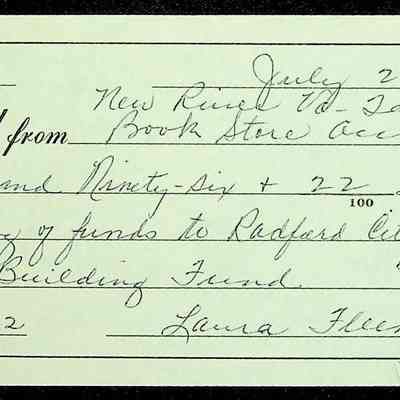 July 2
New River Vo-Te
from Book Store Acc
and Ninety-six + 22
100
of funds to Radford Cit
Building Fund.
2 Laura Flee